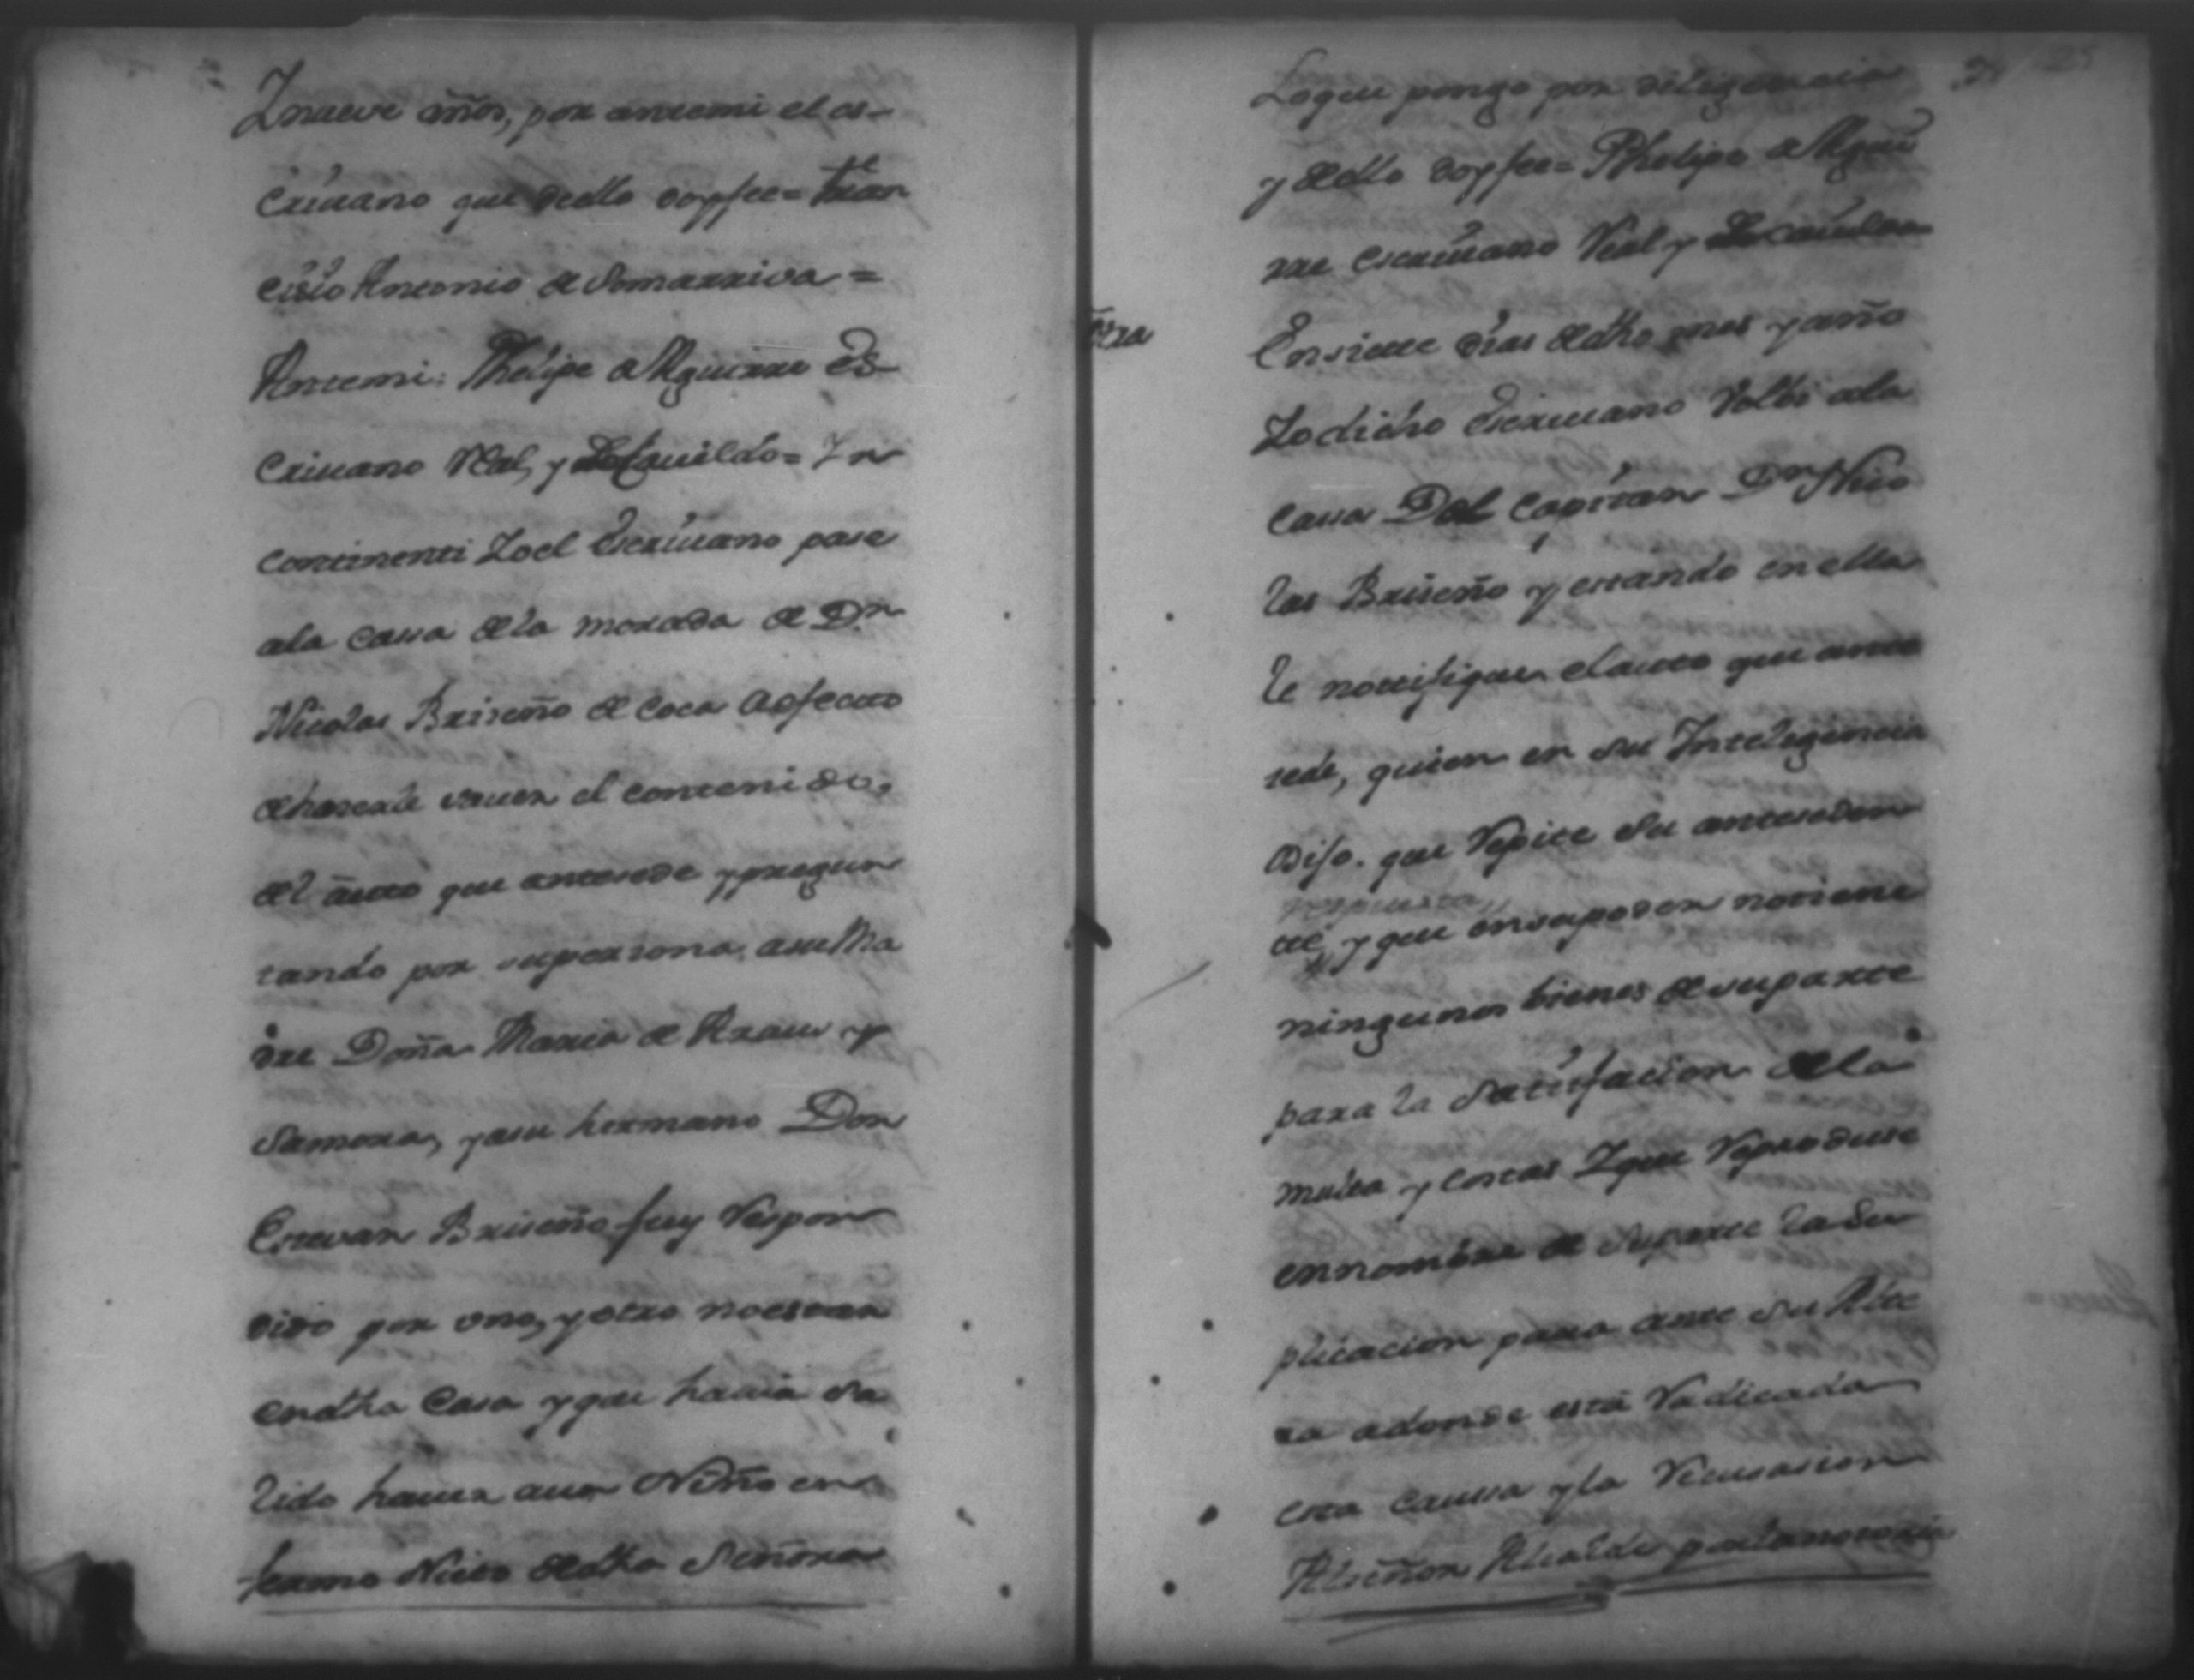 Ynueve años, por antemi el es-
criuano que dello doyfee= Fran
cisco Antonio de Somarriva =
Antemi: Phelipe de Aguirre Es-
criuano Real, y de Cauildo= Yn
continenti Yoel Escriuano pase
ala casa dela morada de Dn
Nicolas Briseño de Coca aefecto
de haserle sauer el contenido,
del auto que antesede y pregun
tando por supersona, asu Ma
dre Doña Maria de Arau y
Samora, yasu hermano Don
Estevan Briseño fuy Respon
dido por uno, y otro noestar
endha Casa y que hauia Sa
lido hauer aun Niño en
fermo Nieto dedha Señora
Loque pongo por diligencia
y dello doyfee= Phelipe de Agui
rre escriuano Real y de Cauildo
Otra
Ensiette dias dedho mes y año
Yodicho Escriuano Volbi ala
casa Del Capitan Dn Nico
las Briseño y estando en ella
le nottifique elauto que ante
sede, quien en su Inteligencia
Dijo. que Repite Su anteseden
respuesta,,
te,, y que ensupoder notiene
ningunos bienes desuparte
para la Satisfacion dela
multa y costas Yque Reproduse
ennombre de Suparte laSu
plicacion para ante Su Alte
za adonde està Radicada
esta caussa yla Recusacion
Alseñor Alcalde porlanotoria